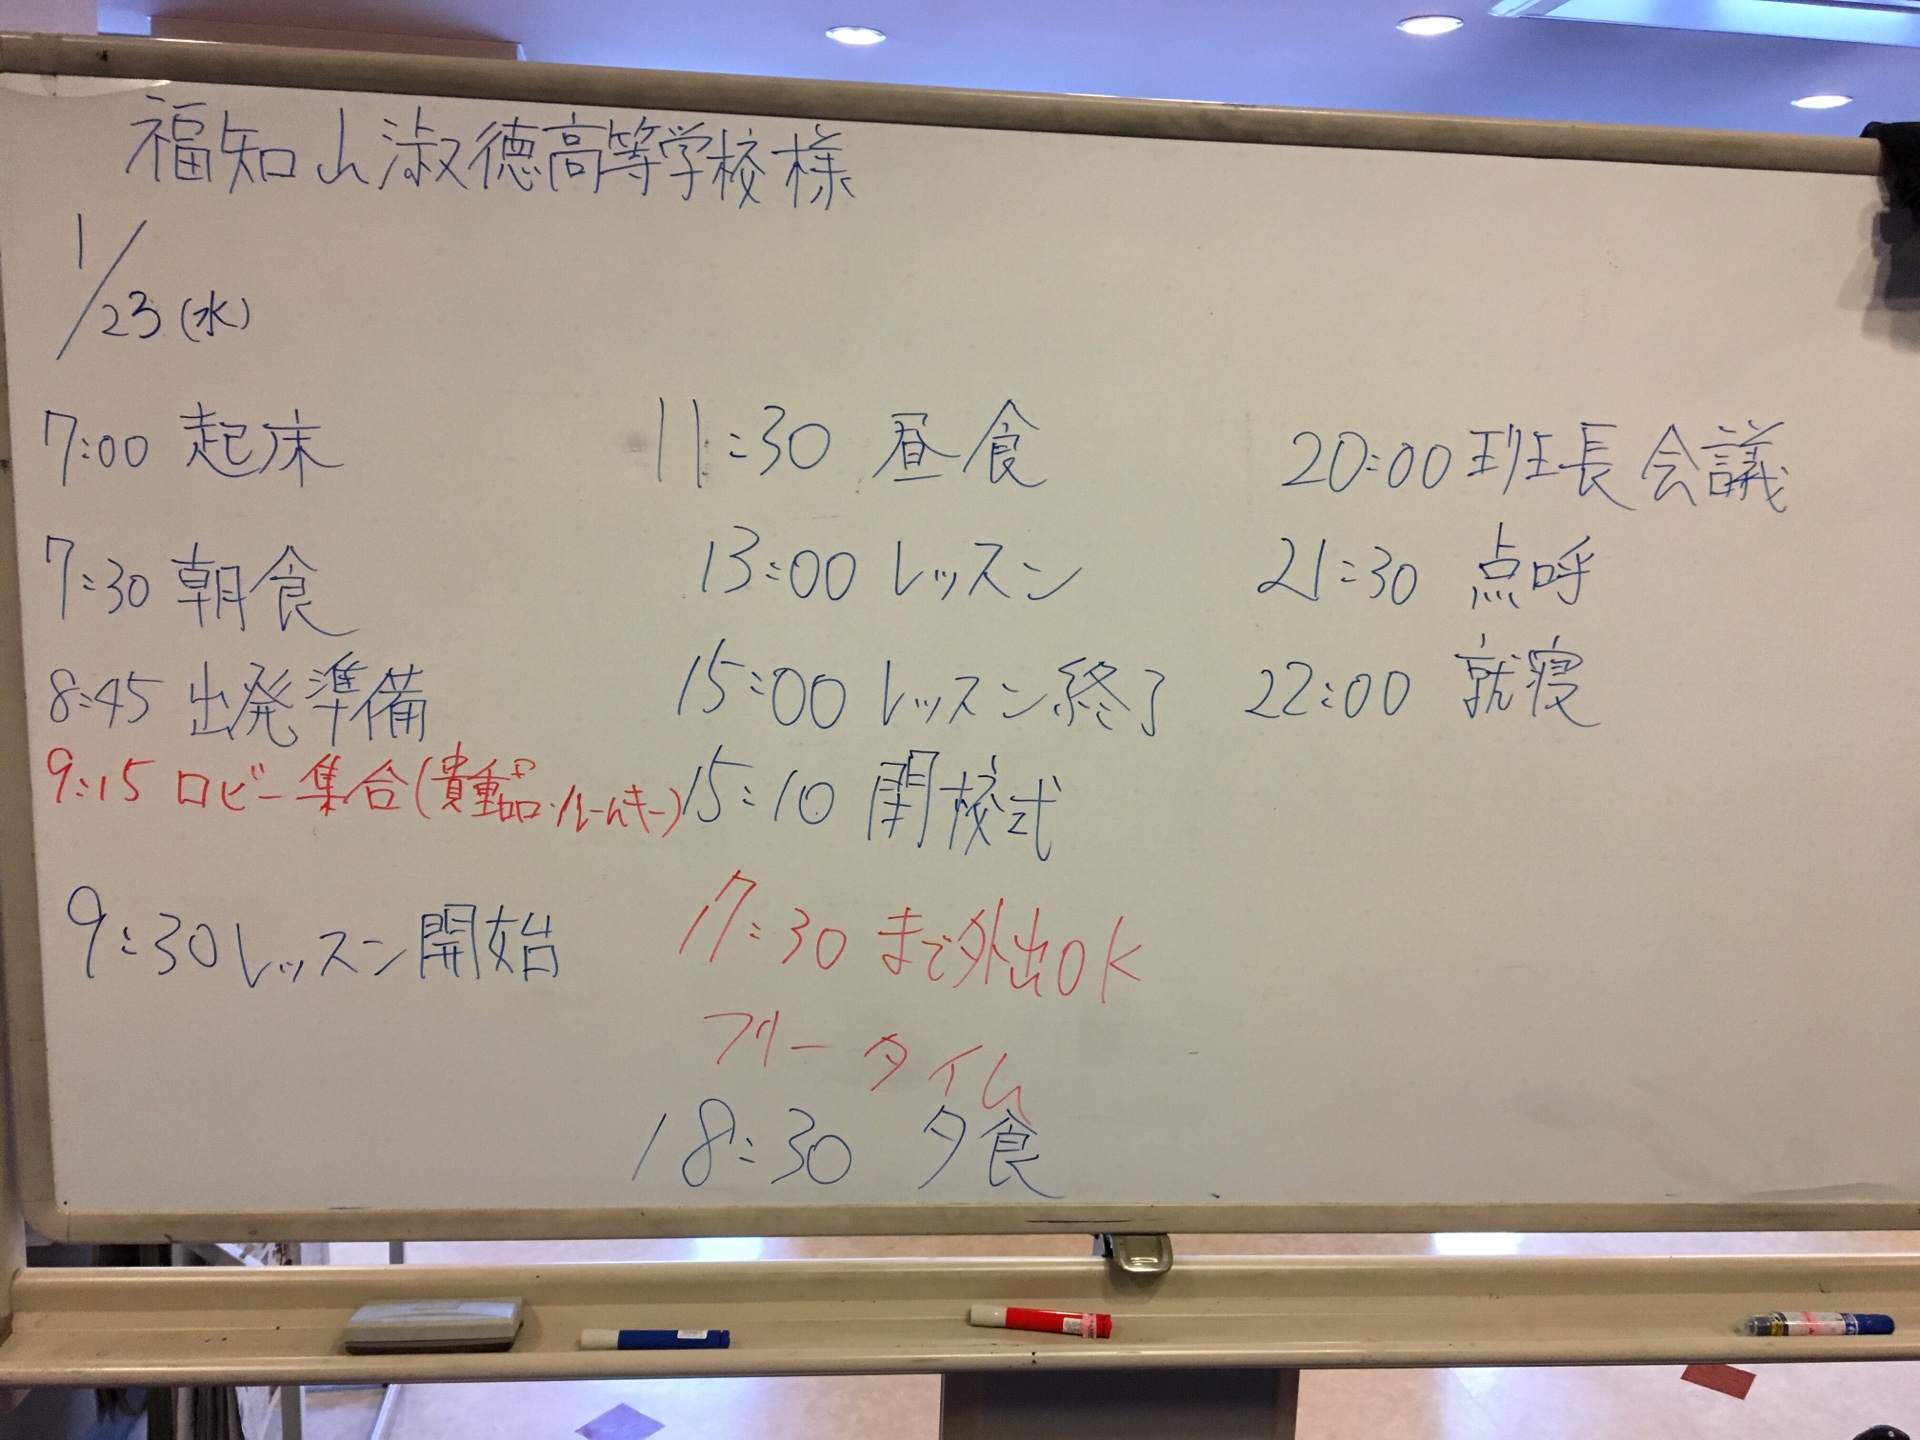 福知山淑徳高等学校様
1/23(水)
7:00 起床
7:30 朝食
8:45 出発準備
9:15 ロビー集合(貴重品・ルームキー)
9:30 レッスン開始
11:30 昼食
13:00 レッスン
15:00 レッスン終了
15:10 閉校式
17:30 まで外出OK
フリータイム
18:30 夕食
20:00 班長会議
21:30 点呼
22:00 就寝